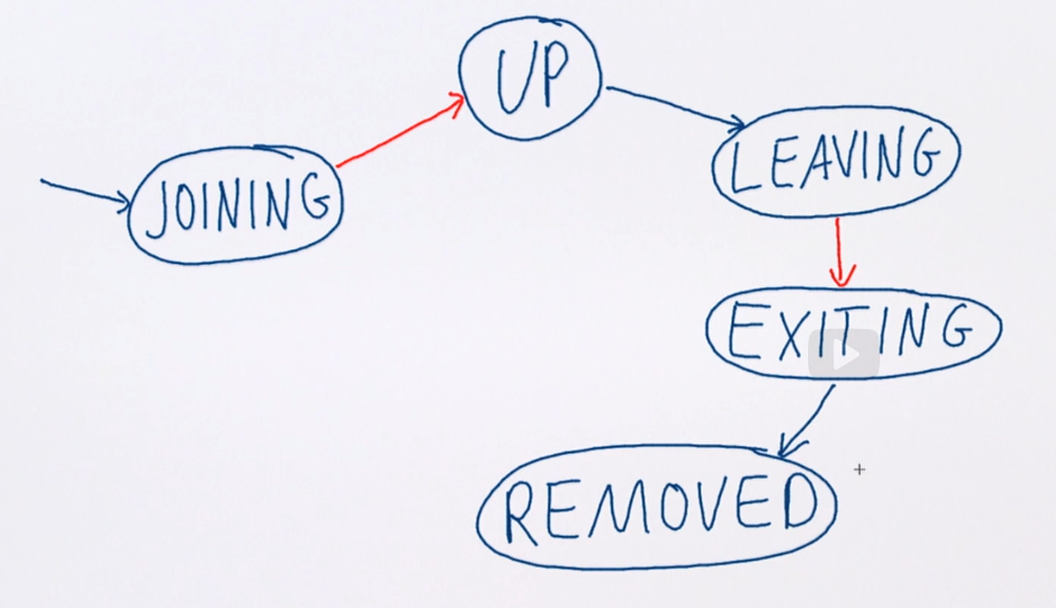 UP
JOINING
LEAVING
EXITING
REMOVED